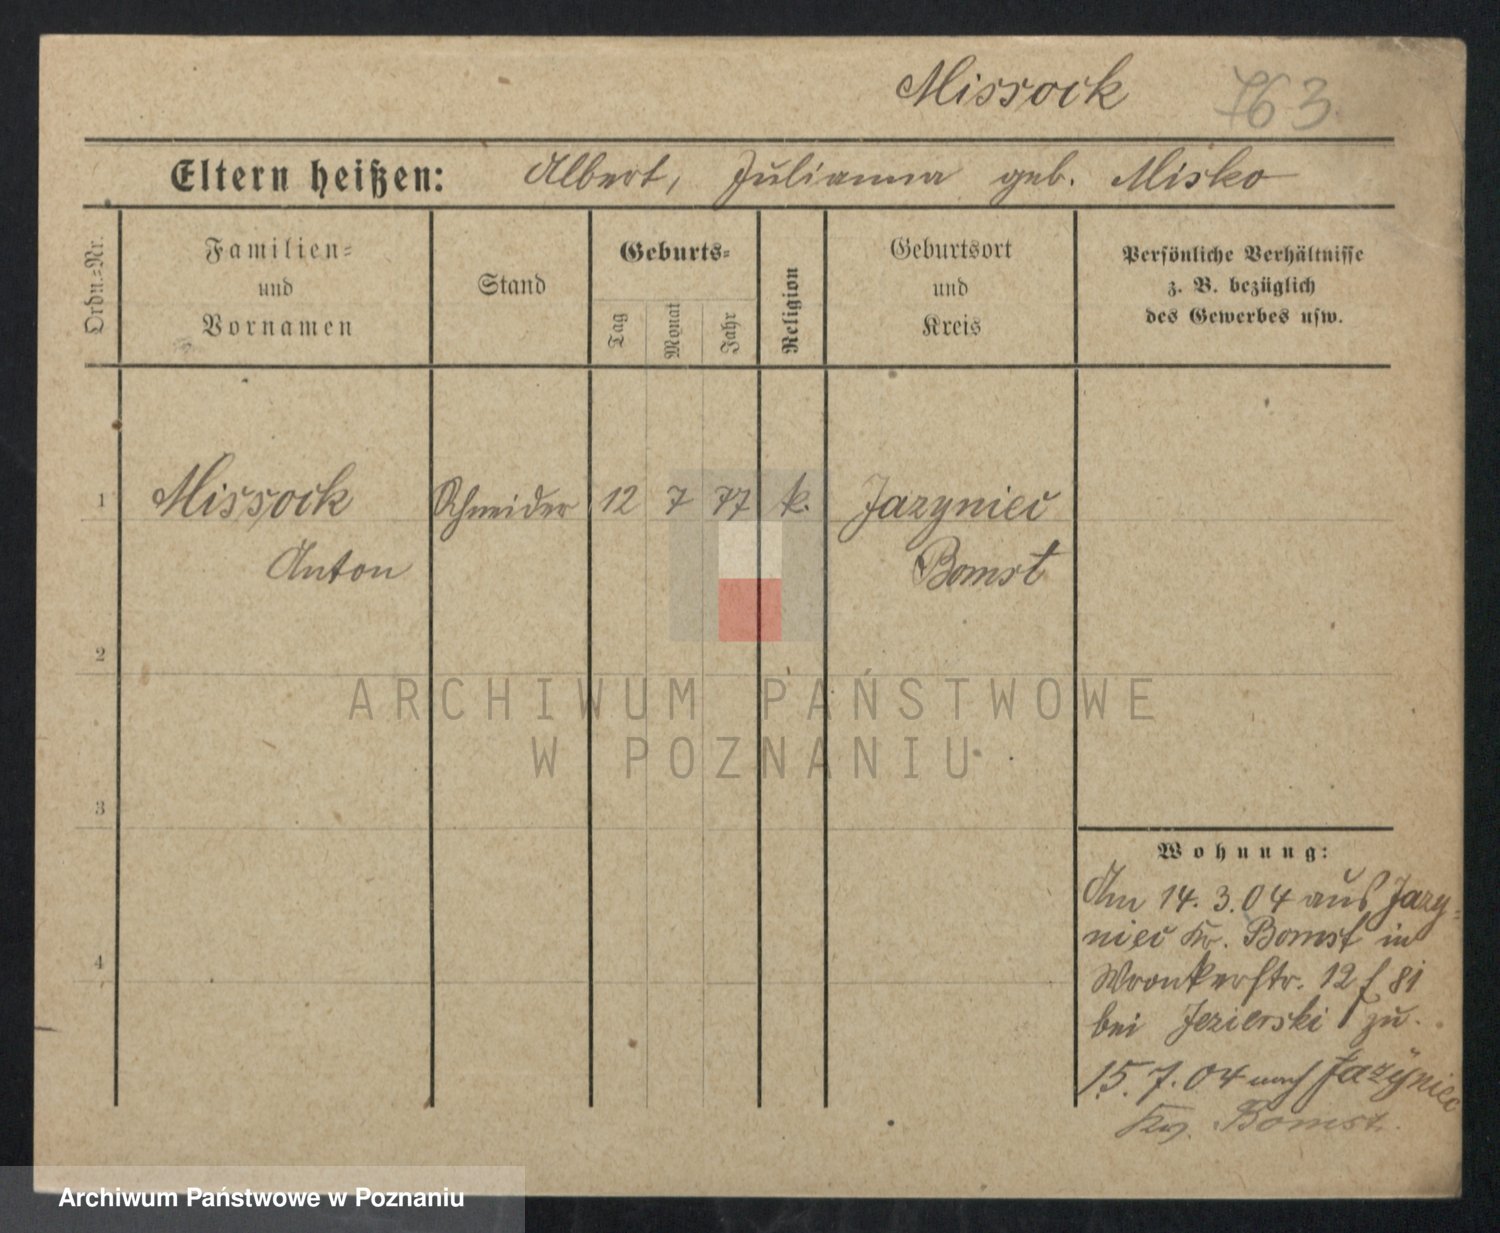 Missock 763
Eltern heißen: Albert, Julianna geb. Misko
Ordn.=Nr.
Familien=
und
Vornamen
Stand
Geburts=
Tag
Monat
Jahr
Religion
Geburtsort
und
Kreis
Persönliche Verhältnisse
z. B. bezüglich
des Gewerbes usw.
1 Missock Schneider 12 7 77 k. Jazyniec
Anton Bomst
2
ARCHIWUM PAŃSTWOWE
W POZNANIU
3
Wohnung:
Am 14. 3. 04 aus Jazy=
niec Kr. Bomst in
4
Wronkerstr. 12 f 81
bei Jezierski zu.
15. 7. 04 nach Jazyniec
Kr. Bomst.
Archiwum Państwowe w Poznaniu